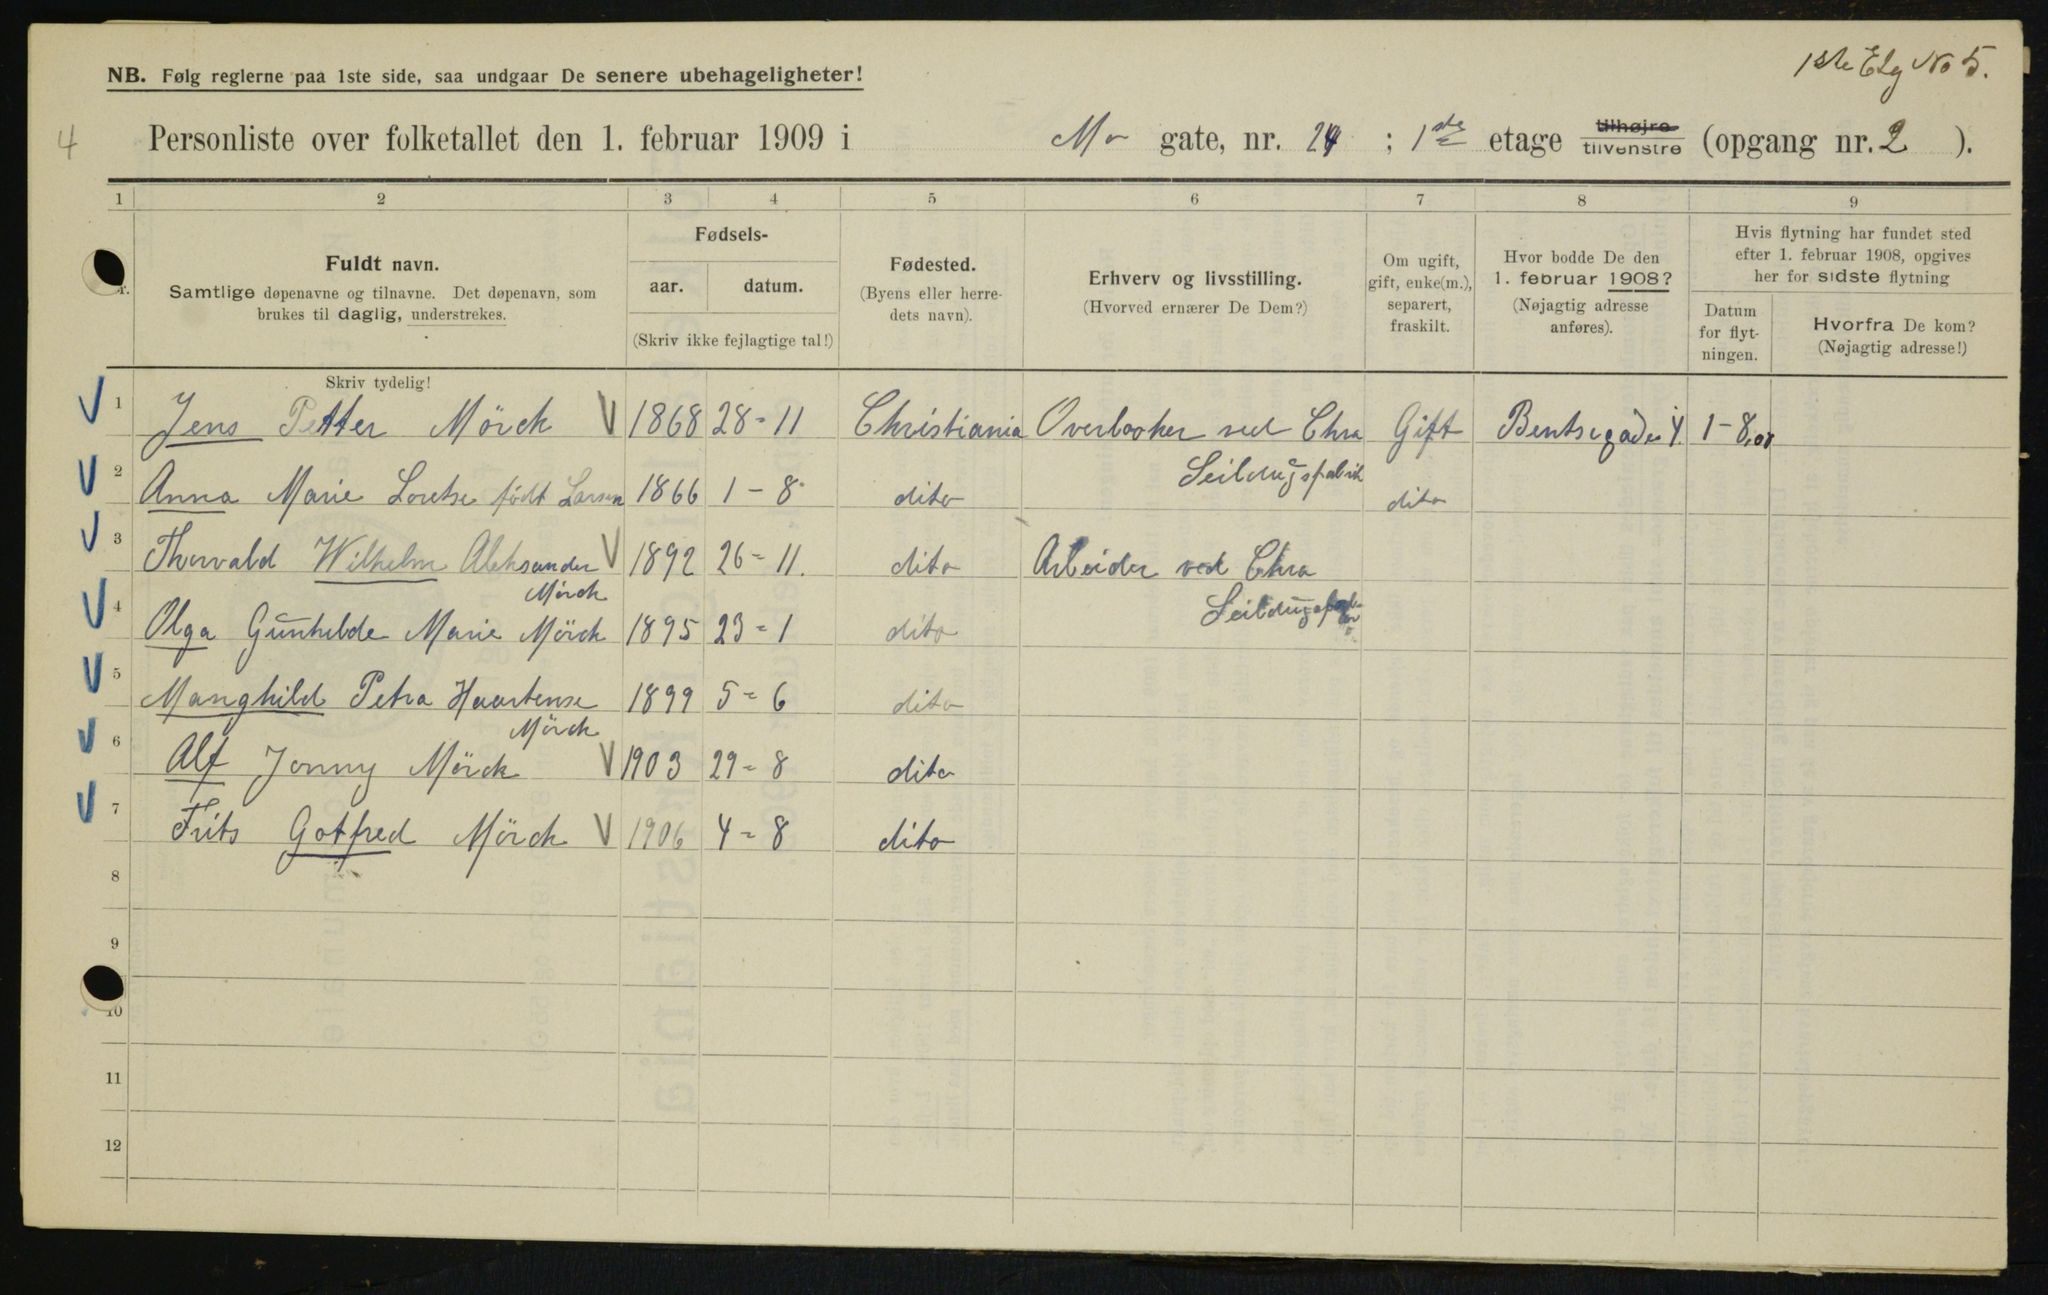 1ste Etg No 5.
NB. Følg reglerne paa 1ste side, saa undgaar De senere ubehageligheter!
4
Personliste over folketallet den 1. februar 1909 i Mo gate, nr. 24 ; 1ste etage tilhøjre tilvenstre (opgang nr. 2 ).
1 2 3 4 5 6 7 8 9
Fuldt navn.
Samtlige døpenavne og tilnavne. Det døpenavn, som
brukes til daglig, understrekes.
Skriv tydelig!
Fødsels-
aar. datum.
(Skriv ikke fejlagtige tal!)
Fødested.
(Byens eller herre-
dets navn).
Erhverv og livsstilling.
(Hvorved ernærer De Dem?)
Om ugift,
gift, enke(m.),
separert,
fraskilt.
Hvor bodde De den
1. februar 1908?
(Nøjagtig adresse
anføres).
Hvis flytning har fundet sted
efter 1. februar 1908, opgives
her for sidste flytning
Datum
for flyt-
ningen.
Hvorfra De kom?
(Nøjagtig adresse!)
1 Jens Petter Mörck 1868 28=11 Christiania Overlooker ved Chra Gift Bentsegade 4. 1-8.08
Seildugsfabrik
2 Anna Marie Loretse født Larsen 1866 1-8 dito dito
3 Thorvald Wilhelm Aleksander 1892 26=11. dito Arbeider ved Chra
Mörck
Seildugsfabrik
4 Olga Gunhilde Marie Mörck 1895 23=1 dito
5 Manghild Petra Haartense 1899 5=6 dito
Mörck
6 Alf Jonny Mörck 1903 29=8 dito
7 Frits Gotfred Mörck 1906 4=8 dito
8
9
10
11
12